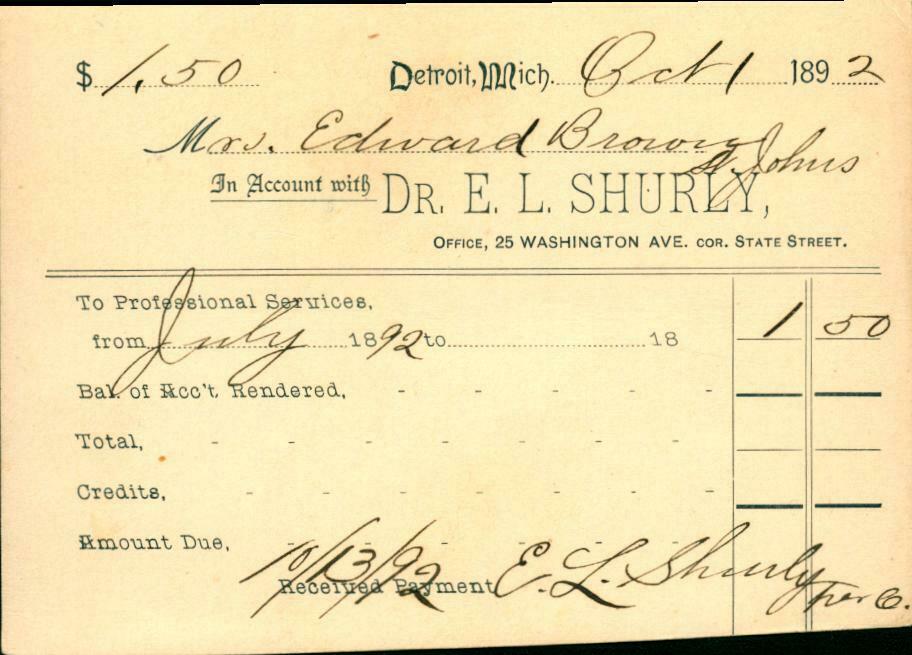 $ 1.50 Detroit, Mich. Oct 1 1892
Mrs. Edward Brown
St Johns
In Account with DR. E. L. SHURLY,
OFFICE, 25 WASHINGTON AVE. COR. STATE STREET.
To Professional Services,
from July 1892 to 18 1 50
Bal. of Acc't Rendered, - - - - -
Total, - - - - - - -
Credits, - - - - - - -
Amount Due, - - - - - -
10/13/92
Received Payment E. L. Shurly
per C.